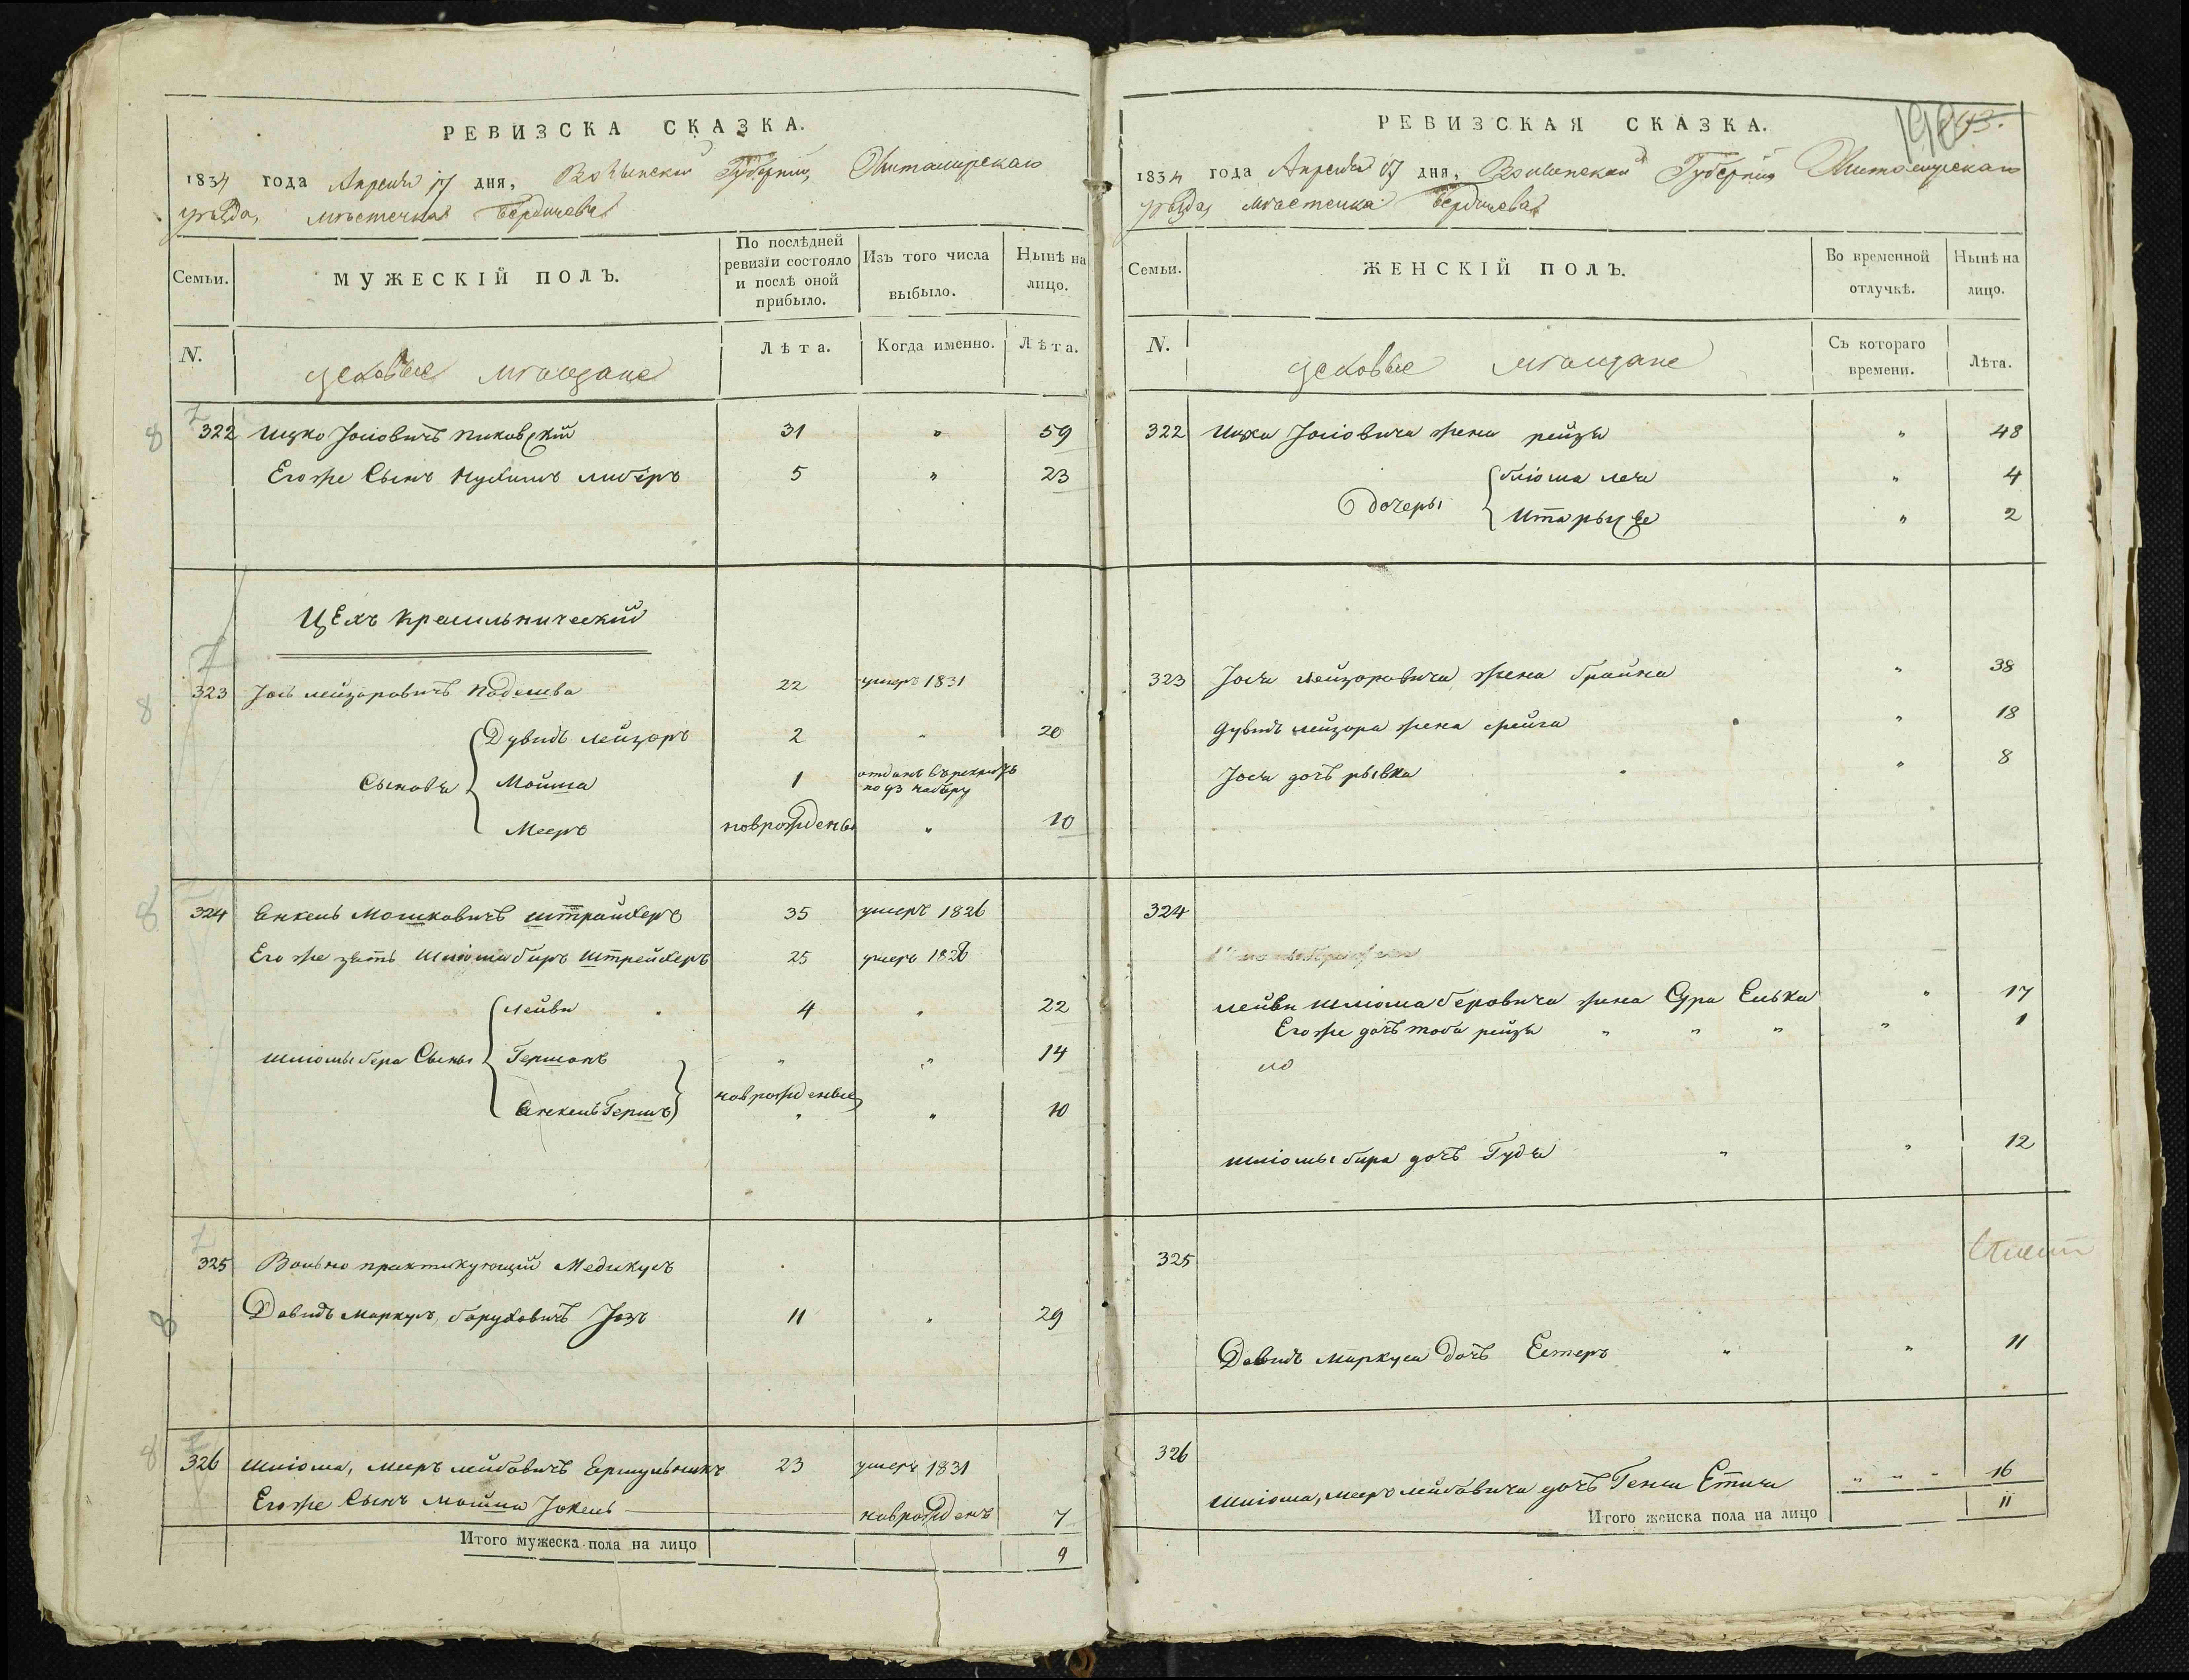 РЕВИЗСКА СКАЗКА.
1834 года Апреля 17 дня, Волынской Губернии, Житомирскаго
уезда, местечка Бердичева
Семьи.
МУЖЕСКІЙ ПОЛЪ.
По послѣдней ревизіи состояло и послѣ оной прибыло.
Изъ того числа выбыло.
Нынѣ на лицо.
N.
цеховые мещане
Лѣта.
Когда именно.
Лѣта.
322 Ицко Іосіовичъ Пиковскій 31 " 59
Его же Сынъ Нухимъ либеръ 5 " 23
ЦЕхъ Красильнический
323 Іось лейзоровичъ 22 умеръ 1831
Сыновья
Дувидъ лейзоръ 2 " 20
Мошка 1 отданъ въ рекруты по 93 набору
Мееръ новрожденны " 10
324 Енкель Мошковичъ штрайхеръ 35 умеръ 1826
Его же зять Шліома биръ Штрейхеръ 25 умеръ 1828
Шліомы бера Сыны
Лейви 4 " 22
Гершонъ " " 14
Енкель Гершъ новрожденые " " 10
325 Вольно практикующий Медикусъ
Давидъ Маркусъ, баруховичъ Іозъ 11 " 29
326 Шліома, Мееръ лейбовичъ 23 умеръ 1831
Его же Сынъ Мошка Іокель новрожденъ 7
Итого мужеска пола на лицо 9
РЕВИЗСКАЯ СКАЗКА.
1834 года Апреля 17 дня, Волынской Губернии Житомирскаго
уезда, местечка Бердичева
Семьи.
ЖЕНСКІЙ ПОЛЪ.
Во временной отлучкѣ.
Нынѣ на лицо.
N.
цеховые мещане
Съ котораго времени.
Лѣта.
322 Ицка Іосіовича жена рейзя " 48
Дочеры
бліома леа " 4
Ита рыся " 2
323 Іося лейзоровича жена брайна " 38
Дувидъ лейзора жена фейга " 18
Іося дочъ рывка " 8
324
лейви шліома беровича жена Сура Елька " 17
Его же дочъ тоба рейзя " " " " 1
шліомы бира дочъ Гудя " " 12
325
Давидъ Маркуса Дочъ Естеръ " " 11
326
Шліома, мееръ лейбовича дочъ Геня Етия " " " 16
Итого женска пола на лицо 11